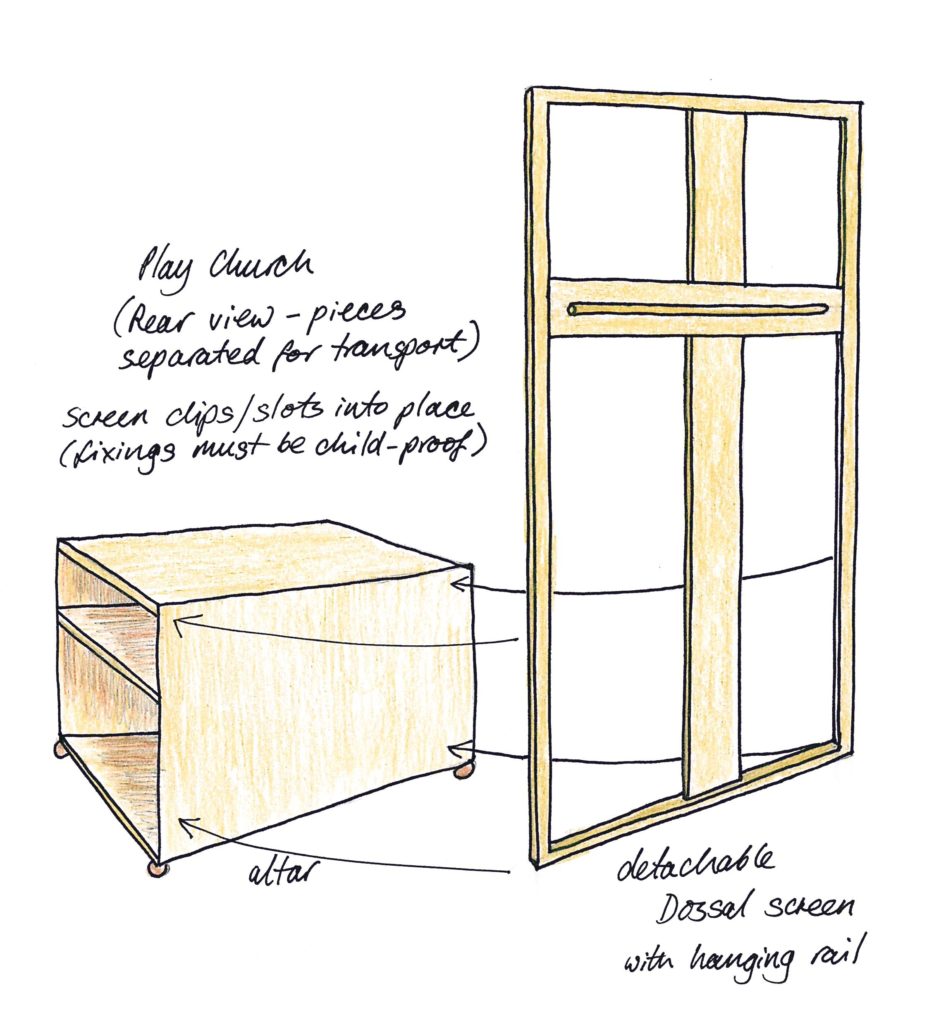 Play Church
(Rear view - pieces
separated for transport)
screen clips/slots into place
(fixings must be child-proof)
altar
detachable
Dossal screen
with hanging rail